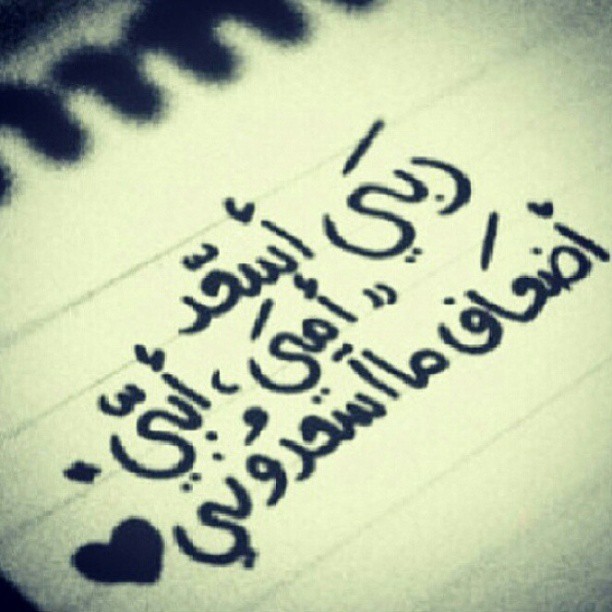 ربي أسعد
"أمي، أبي"
أضعاف ما أسعدوني ♥